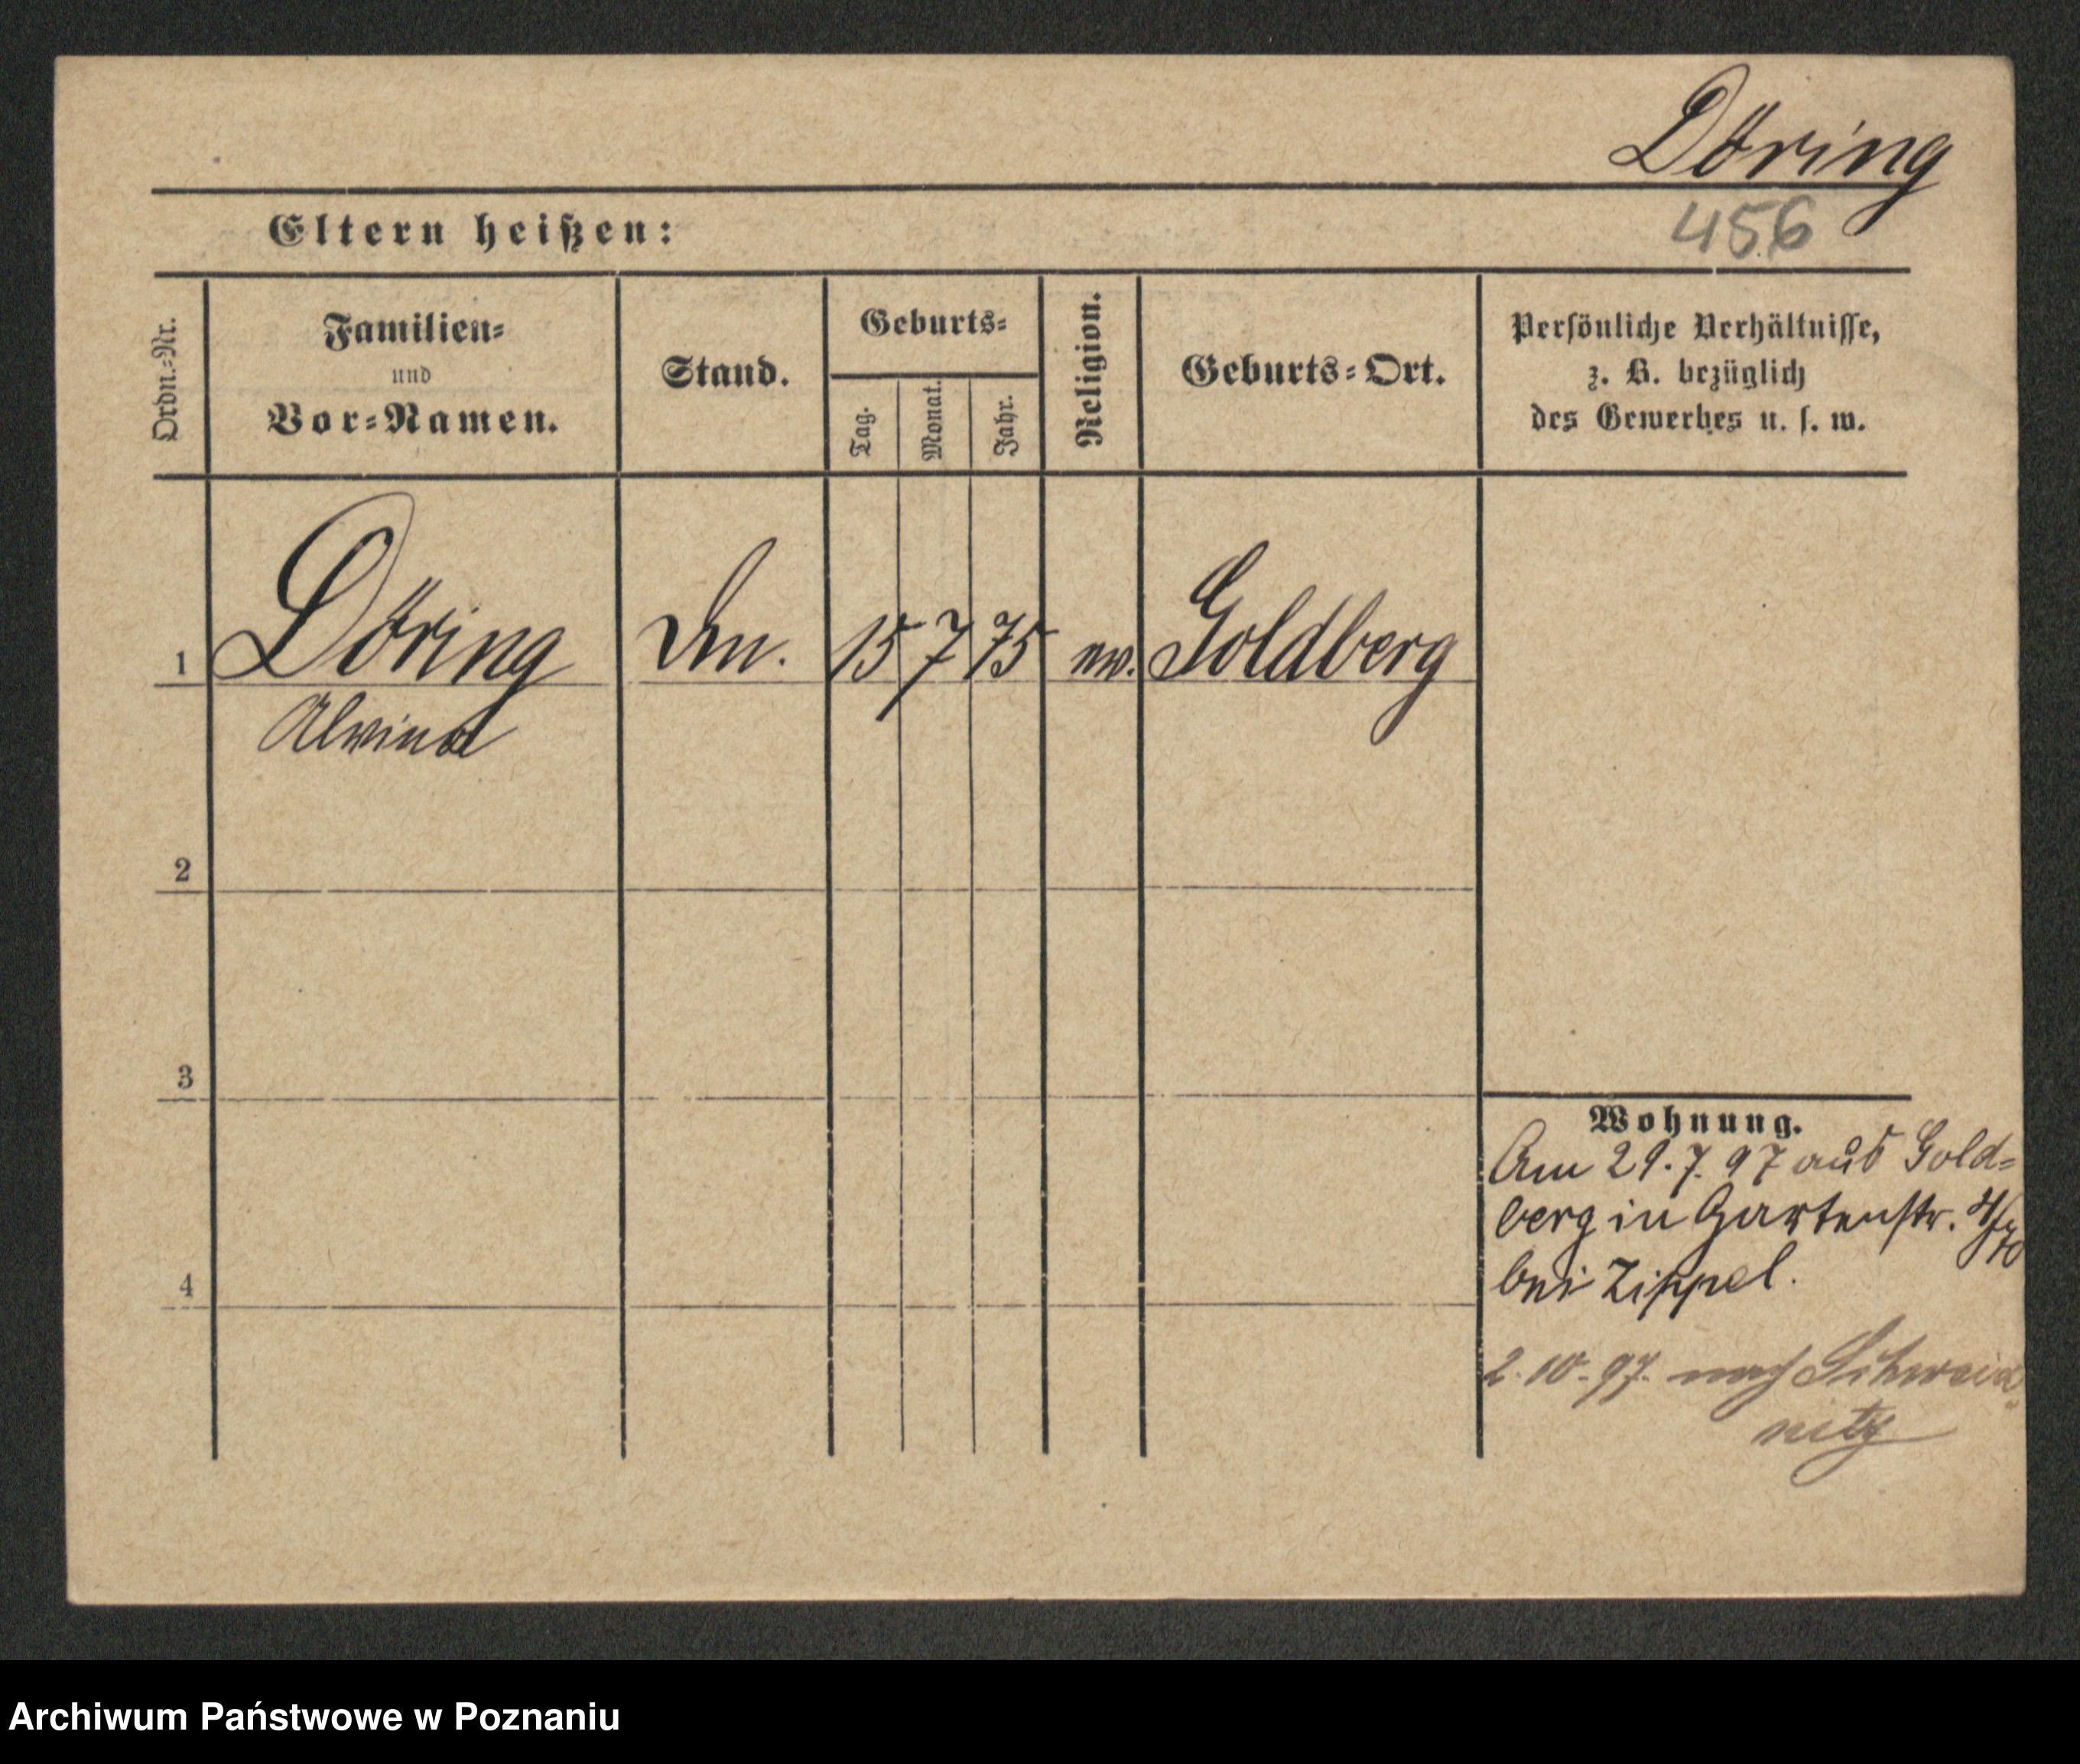 Döring
Eltern heißen:
456
Ordn.-Nr.
Familien-
und
Vor-Namen.
Stand.
Geburts-
Tag.
Monat.
Jahr.
Religion.
Geburts-Ort.
Persönliche Verhältnisse,
z. B. bezüglich
des Gewerbes u. s. w.
1 Döring 15 7 75 Goldberg
Alwine
2
3
4
Wohnung.
Am 29.7.97 aus Gold-
berg in Gartenstr.
bei Zippel.
2.10.97. nach Schweid-
nitz
Archiwum Państwowe w Poznaniu